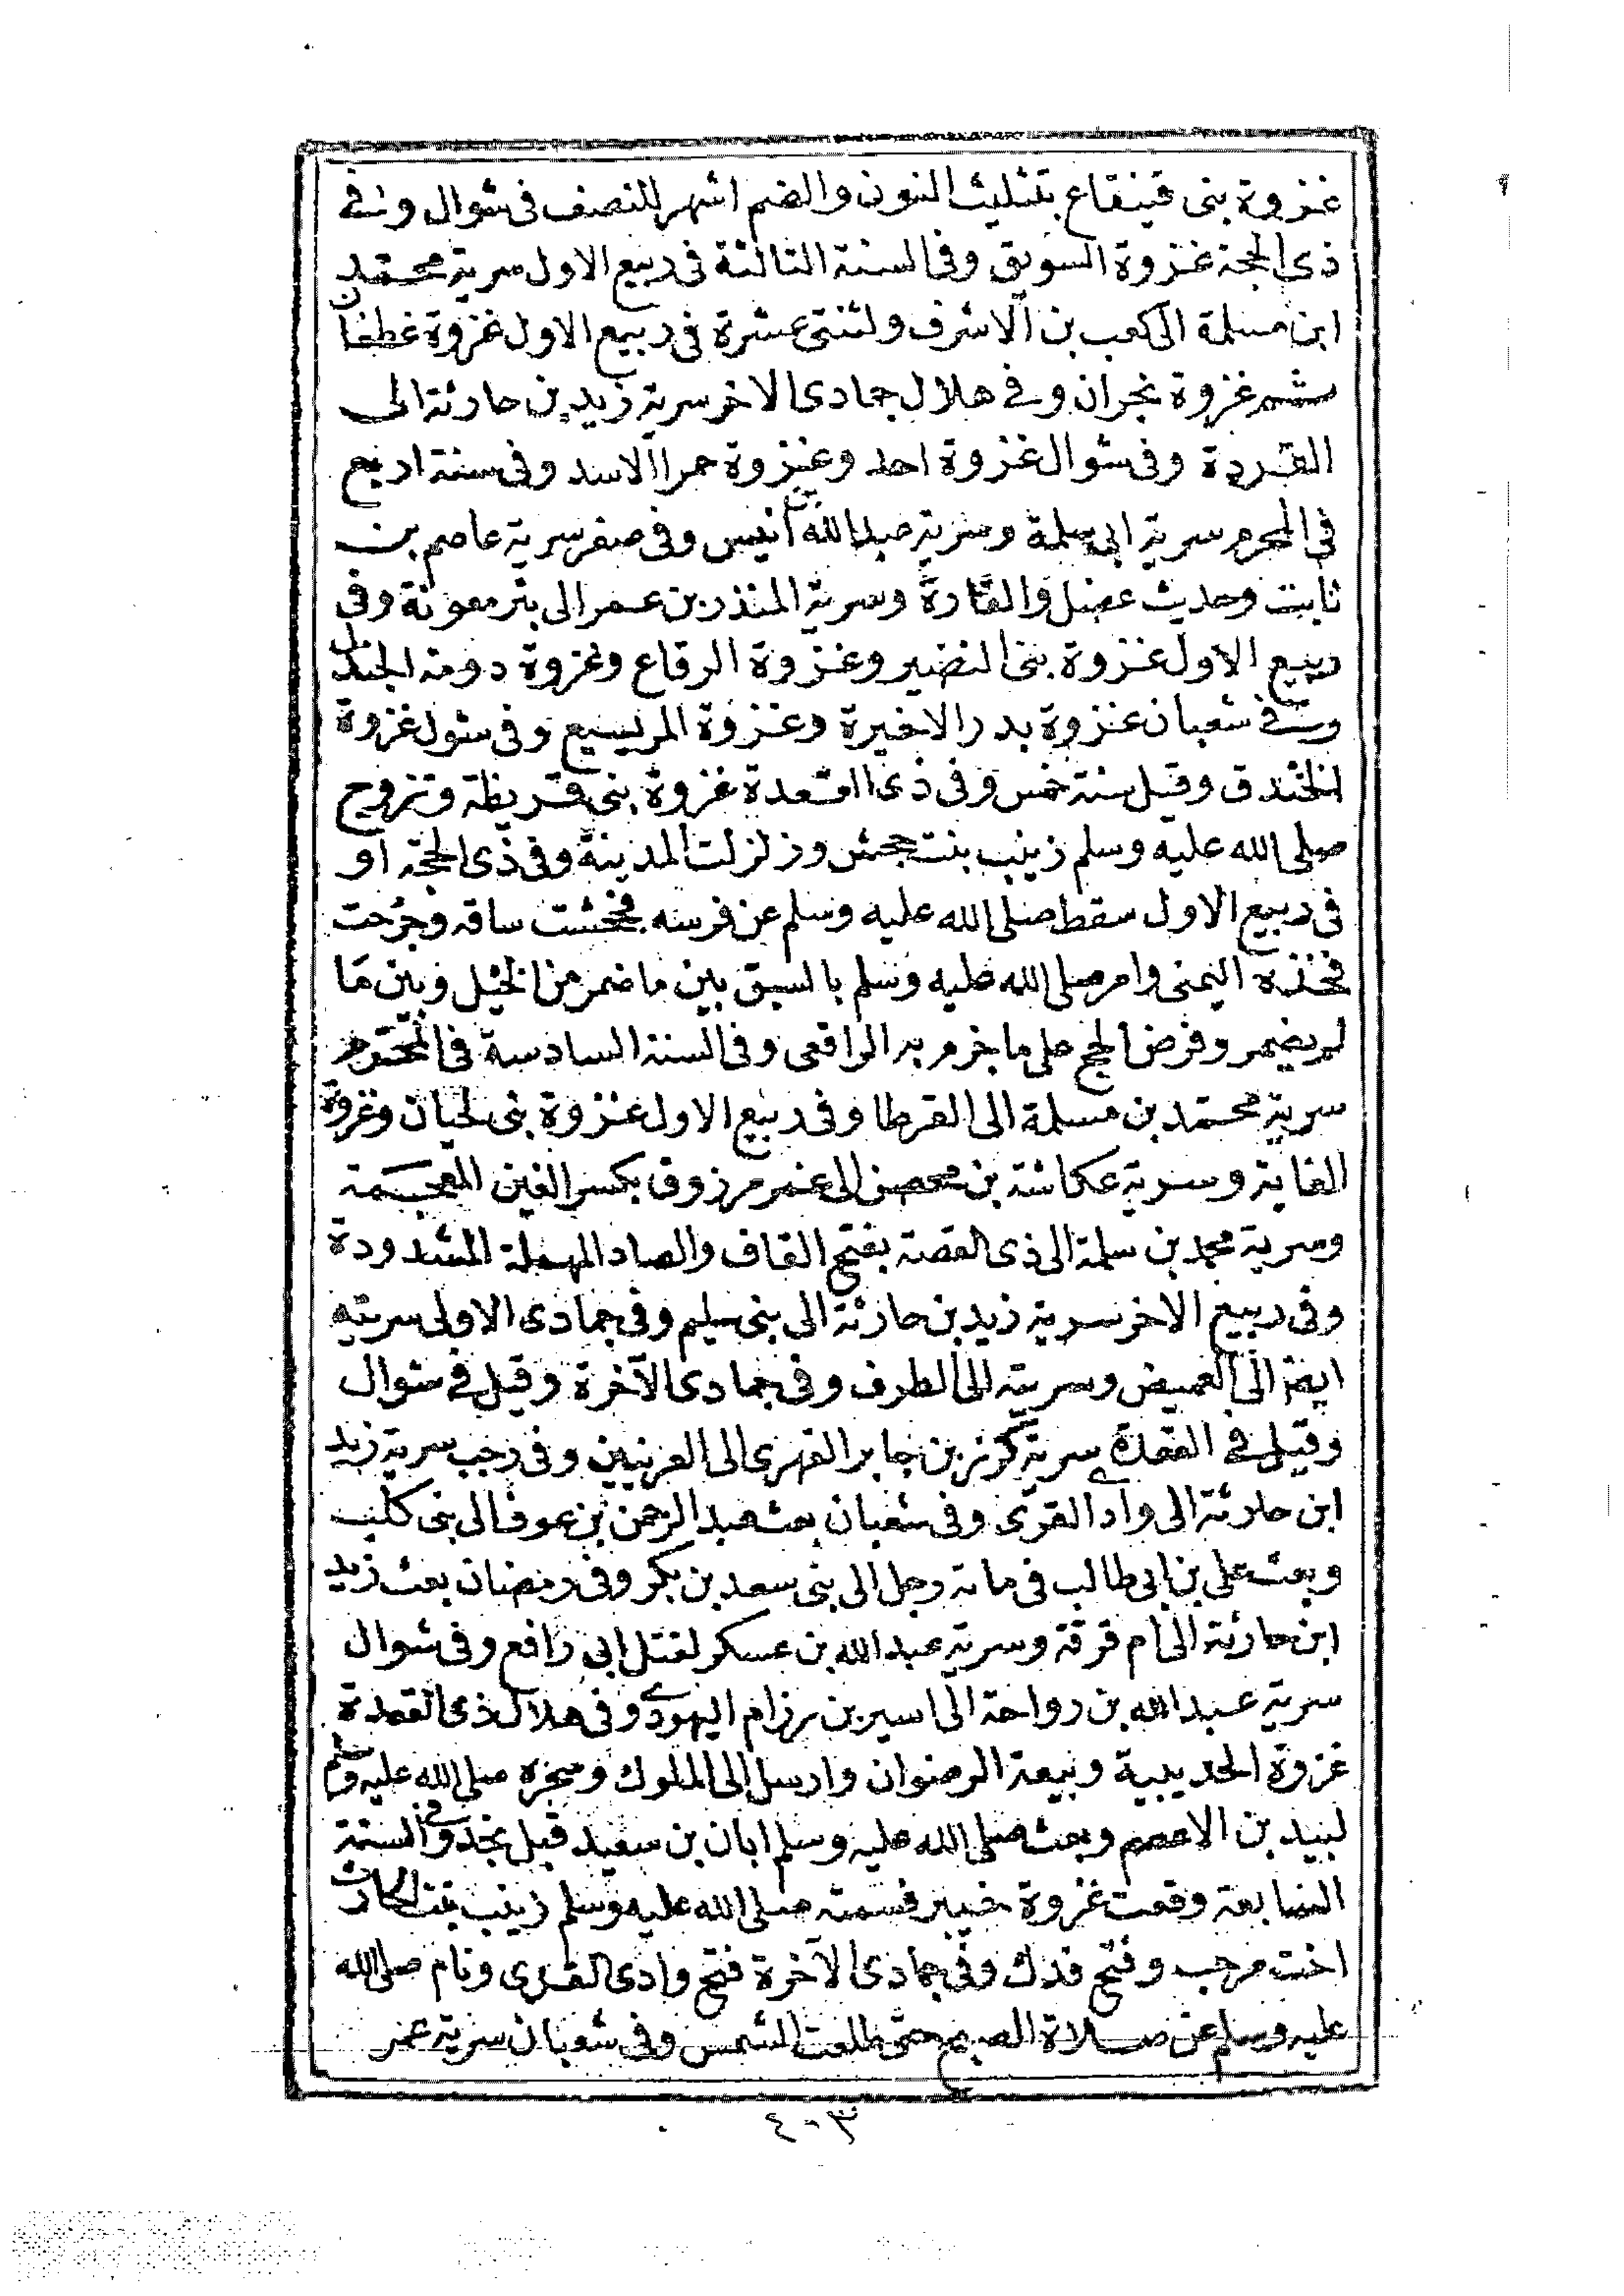 غزوة بنى قينقاع بتثليث النون والضم اشهر للنصف فى شوال وفى
ذى الحجة غزوة السويق وفى السنة الثالثة فى ربيع الاول سرية محمد
ابن مسلمة الى كعب بن الاشرف ولثنتى عشرة فى ربيع الاول غزوة غطفان
ثم غزوة نجران وفى هلال جمادى الاخر سرية زيد بن حارثة الى
القردة وفى شوال غزوة احد وغزوة حمرا الاسد وفى سنة اربع
فى المحرم سرية ابى سلمة وسرية عبد الله بن أنيس وفى صفر سرية عاصم بن
ثابت وحديث عضل والقارة وسرية المنذر بن عمر الى بئر معونة وفى
ربيع الاول غزوة بنى النضير وغزوة الرقاع وغزوة دومة الجندل
وفى شعبان غزوة بدر الاخيرة وغزوة المريسيع وفى شول غزوة
الخندق وقيل سنة خمس وفى ذى القعدة غزوة بنى قريظة وتزوج
صلى الله عليه وسلم زينب بنت جحش وزلزلت المدينة وفى ذى الحجة أو
فى ربيع الاول سقط صلى الله عليه وسلم عن فرسه فخشت ساقه وجرحت
فخذه اليمنى وامر صلى الله عليه وسلم بالسبق بين ما ضمر من الخيل وبين ما
لم يضمر وفرض الحج على ما جزم به الرافعى وفى السنة السادسة فى المحرم
سرية محمد بن مسلمة الى القرطا وفى ربيع الاول غزوة بنى لحيان وغزوة
الغابة وسرية عكاشة بن محصن الى غمر مرزوق بكسر الغين المعجمة
وسرية محمد بن سلمة الى ذى القصة بفتح القاف والصاد المهملة المشدودة
وفى ربيع الاخر سرية زيد بن حارثة الى بنى سليم وفى جمادى الاولى سريته
ايضا الى العميض وسرية الى الطرف وفى جمادى الآخرة وقيل فى شوال
وقيل فى القعدة سرية كرز بن جابر الفهرى الى العرنيين وفى رجب سرية زيد
ابن حارثة الى واد القرى وفى شعبان بعث عبد الرحمن بن عوف الى بنى كلب
وبعث على بن ابى طالب فى ماية رجل الى بنى سعد بن بكر وفى رمضان بعث زيد
ابن حارثة الى ام قرفة وسرية عبد الله بن عسكر لقتل ابى رافع وفى شوال
سرية عبد الله بن رواحة الى اسير بن رزام اليهودى وفى هلال ذى القعدة
غزوة الحديبية وبيعة الرضوان وارسل الى الملوك وسحره صلى الله عليه وسلم
لبيد بن الاعصم وبعث صلى الله عليه وسلم ابان بن سعيد قبل نجد وفى السنة
السابعة وقعت غزوة خيبر فسمته صلى الله عليه وسلم زينب بنت الحارث
اخت مرحب وفتح فدك وفى جمادى الآخرة فتح وادى القرى ونام صلى الله
عليه وسلم عن صلاة الصبح حتى طلعت الشمس وفى شعبان سرية عمر
٤٠٣